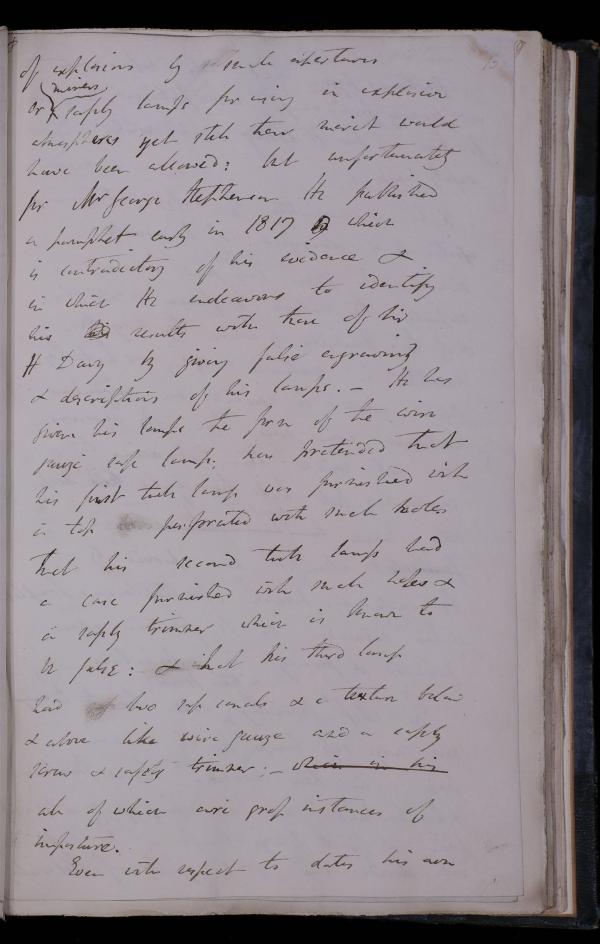 of explosions by small apertures
miners
or safety lamps for using in explosive
atmospheres yet still their merit would
have been allowed: but unfortunately
for Mr George Stephenson He published
a pamphlet early in 1817 which
is contradictory of his evidence &
in which He endeavors to identify
his results with those of Sir
H Davy by giving false engravings
& descriptions of his lamps. - He has
given his lamps the form of the wire
gauze safe lamp; has pretended that
his first tube lamp was furnished with
a top perforated with such holes
that his second tube lamp had
a case furnished with such holes &
a safety trimmer which is known to
be false: & that his third lamp
had two safe canals & a texture below
& above like wire gauze and a safety
screw & safety trimmer; - which in his
all of which are gross instances of
imposture.
Even with respect to dates his own